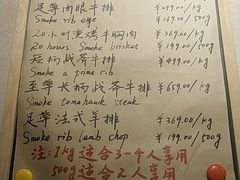 足尊肉眼牛排 ¥299.00/kg
Smoke rib eye ¥169.00/500g
20小时烟烤牛胸肉 ¥369.00/kg
20 hours Smoke brisket ¥199.00/500g
短柄战斧牛排 ¥499.00/kg
Smoke a prime rib
至尊长柄战斧牛排 ¥659.00/kg
Smoke tomahawk steak
足尊法式羊排 ¥369.00/kg
Smoke rib lamb chop ¥199.00/500g
注:1kg适合3-4人享用
500g适合2人享用